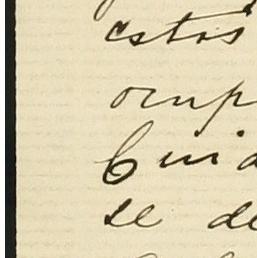 estos
ocup
Cuid
se de